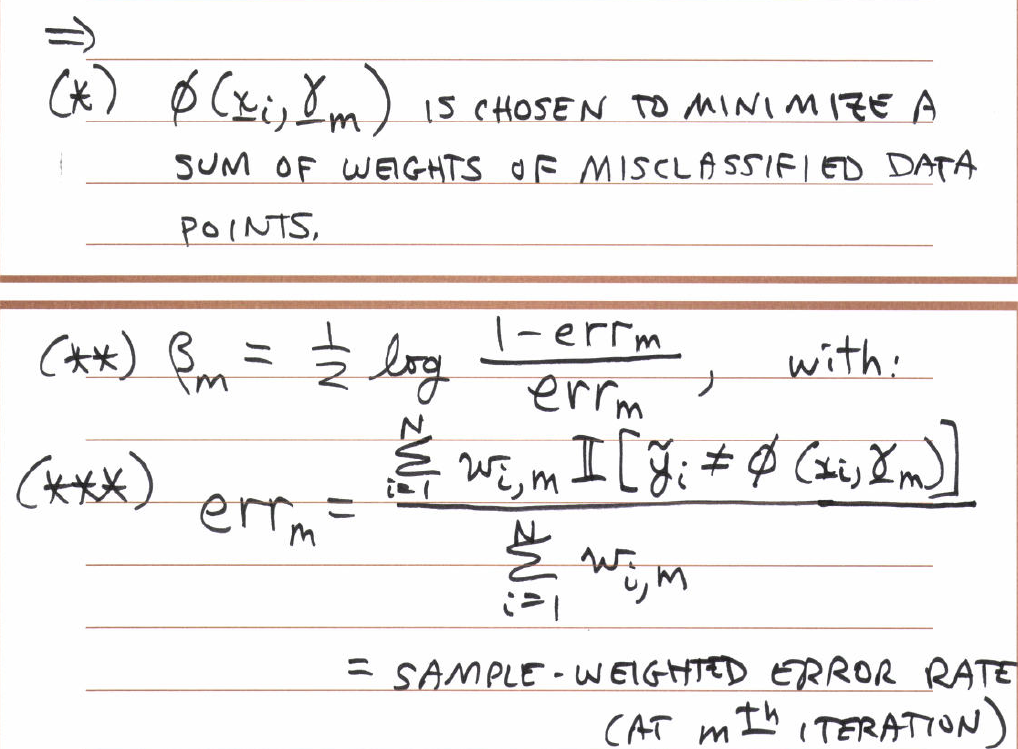 ⇒
(*) φ(x̲i, γ̲m) IS CHOSEN TO MINIMIZE A
SUM OF WEIGHTS OF MISCLASSIFIED DATA
POINTS.
(**) βm = 1/2 log (1-errm)/(errm), with:
(***) errm = (∑_{i=1}^{N} wi,m 𝕀[ỹi ≠ φ(x̲i, γ̲m)])/(∑_{i=1}^{N} wi,m)
= SAMPLE-WEIGHTED ERROR RATE
(AT mth ITERATION)